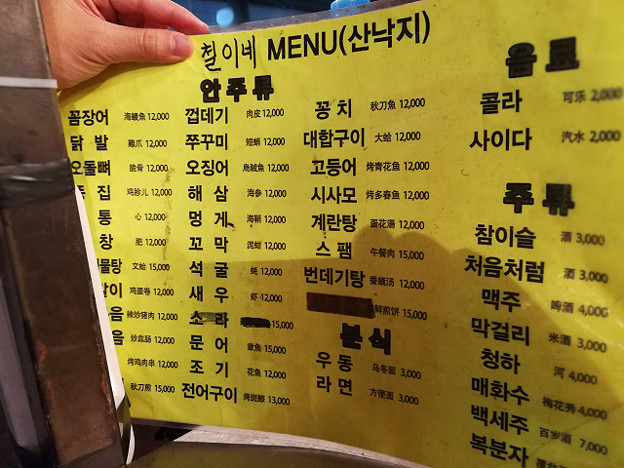 칠이네 MENU(산낙지)
안주류
꼼장어 海鳗魚 12,000
닭발 雞爪 12,000
오돌뼈 脆骨 12,000
집 鸡胗儿 12,000
통 心 12,000
창 肥 12,000
물탕 文蛤 15,000
이 鸡蛋卷 12,000
음 辣炒猪肉 12,000
음 炒血肠 12,000
烤鸡肉串 12,000
秋刀煎 15,000
껍데기 肉皮 12,000
쭈꾸미 短蛸 12,000
오징어 烏賊魚 12,000
해삼 海参 12,000
멍게 海鞘 12,000
꼬막 泥蚶 12,000
석굴 蚝 12,000
새우 虾 12,000
소라 15,000
문어 章魚 15,000
조기 花魚 12,000
전어구이 烤斑鰶 13,000
꽁치 秋刀魚 12,000
대합구이 大蛤 12,000
고등어 烤青花魚 12,000
시사모 烤多春魚 12,000
계란탕 蛋花湯 12,000
스팸 午餐肉 15,000
번데기탕 蚕蛹汤 12,000
鲜煎饼 15,000
분식
우동 乌冬面 3,000
라면 方便面 3,000
음료
콜라 可乐 2,000
사이다 汽水 2,000
주류
참이슬 酒 3,000
처음처럼 酒 3,000
맥주 啤酒 4,000
막걸리 米酒 3,000
청하 河 4,000
매화수 梅花秀 4,000
백세주 百岁酒 7,000
복분자